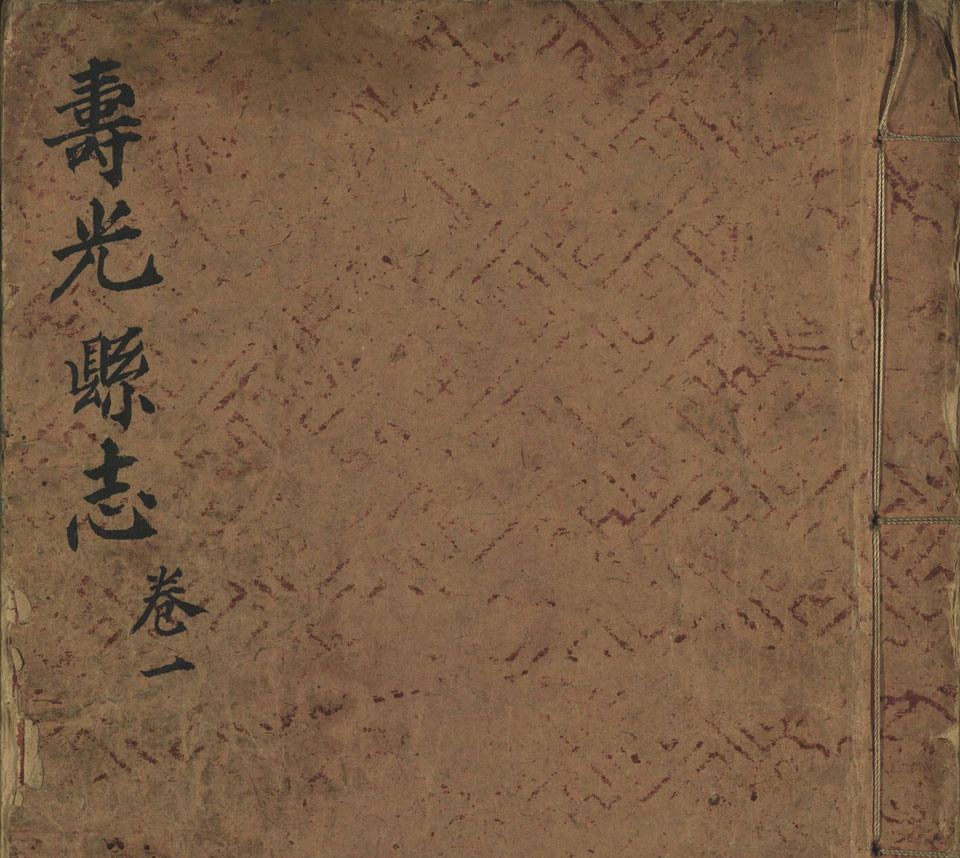 壽光縣志
卷一